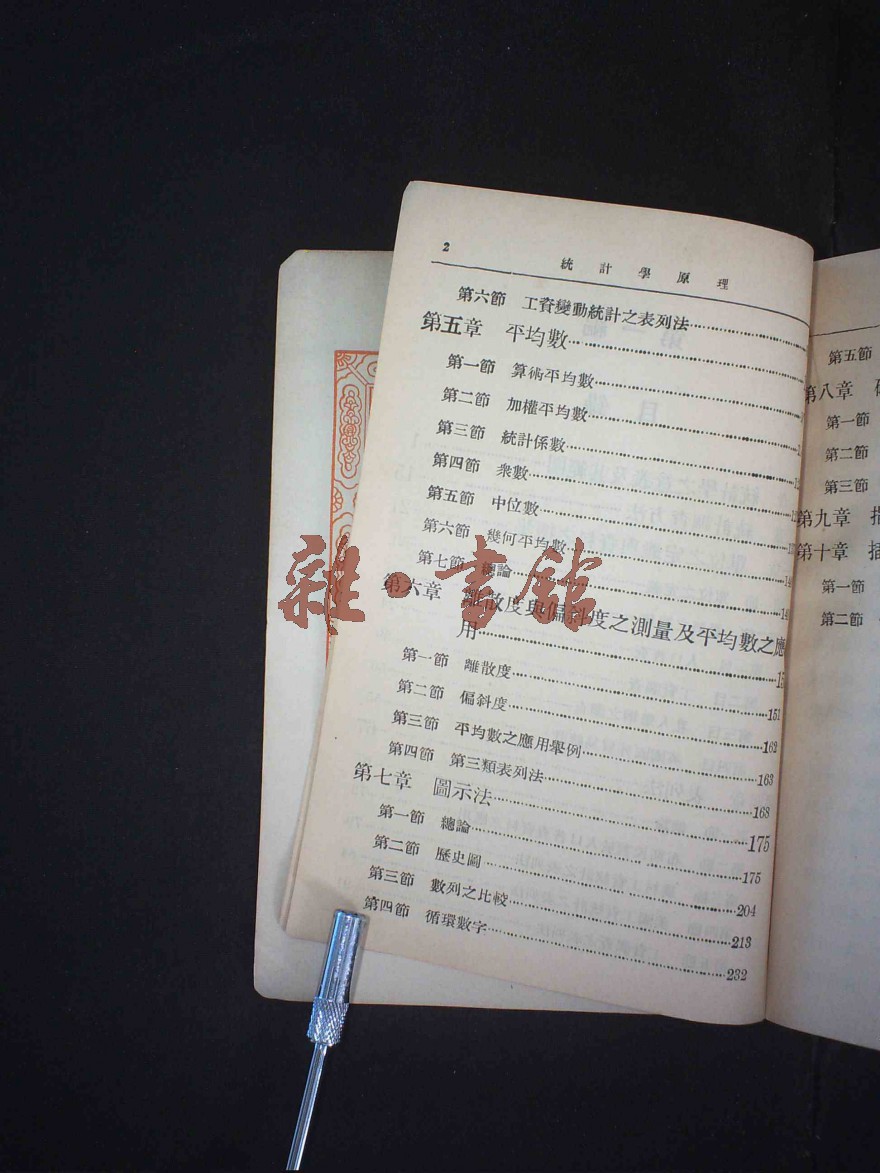 2
統計學原理
第六節 工資變動統計之表列法
第五章 平均數
第一節 算術平均數
第二節 加權平均數
第三節 統計係數
第四節 衆數
第五節 中位數
第六節 幾何平均數
第七節 總論
第六章 離散度與偏斜度之測量及平均數之應
用
第一節 離散度 151
第二節 偏斜度 162
第三節 平均數之應用舉例 163
第四節 第三類表列法 168
第七章 圖示法 175
第一節 總論 175
第二節 歷史圖 204
第三節 數列之比較 213
第四節 循環數字 232
第五節
第八章
第一節
第二節
第三節
第九章
第十章
第一節
第二節
雜·書館